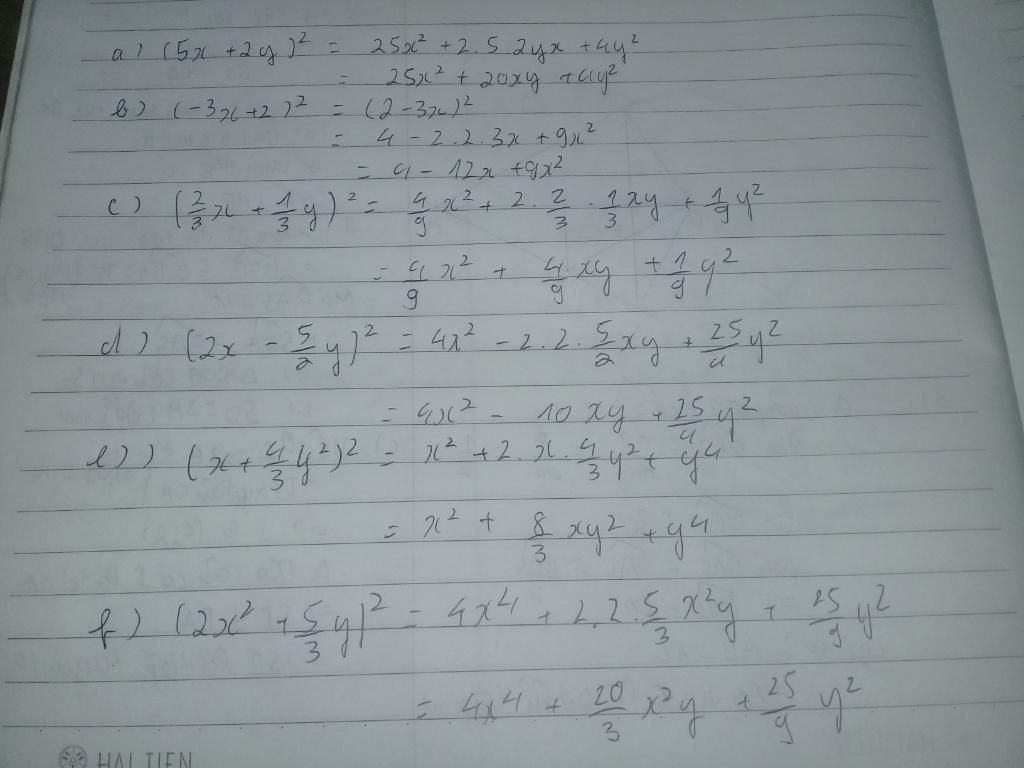 a) (5x + 2y)² = 25x² + 2.5.2yx + 4y²
= 25x² + 20xy + 4y²
b) (-3x + 2)² = (2 - 3x)²
= 4 - 2.2.3x + 9x²
= 4 - 12x + 9x²
c) (2/3x + 1/3y)² = 4/9x² + 2.2/3.1/3xy + 1/9y²
= 4/9x² + 4/9xy + 1/9y²
d) (2x - 5/2y)² = 4x² - 2.2.5/2xy + 25/4y²
= 4x² - 10xy + 25/4y²
e) (x + 4/3y²)² = x² + 2.x.4/3y² + y⁴
= x² + 8/3xy² + y⁴
f) (2x² + 5/3y)² = 4x⁴ + 2.2.5/3x²y + 25/9y²
= 4x⁴ + 20/3x²y + 25/9y²
HAI TIEN